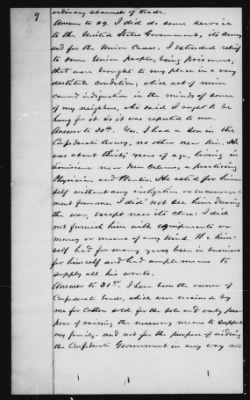 9
ordinary channel of trade.
Answer to 29. I did do some service
to the United States Government, its Army
and for the Union Cause. I extended relief
to some Union people, being prisoners,
that were brought to my place in a very
destitute condition, which act of mine
caused indignation in the minds of some
of my neighbors, who said I ought to be
hung for it. So it was reported to me.
Answer to 30th. Yes, I had a Son in the
Confederate Army, no other near kin. He
was about thirty years of age, living in
Louisiana near New Orleans, a practicing
Physician and Planter. He acted for him-
self without any instigation or encourage-
ment from me. I did not see him during
the war, except near its close. I did
not furnish him with equipments or
money or means of any kind. He him-
self had for many years been in business
for himself and had ample means to
supply all his wants.
Answer to 31st. I have been the owner of
Confederate bonds, which were received by
me for Cotton sold for the sole and only pur-
pose of raising the necessary means to support
my family and not for the purpose of aiding
the Confederate Government in any way and